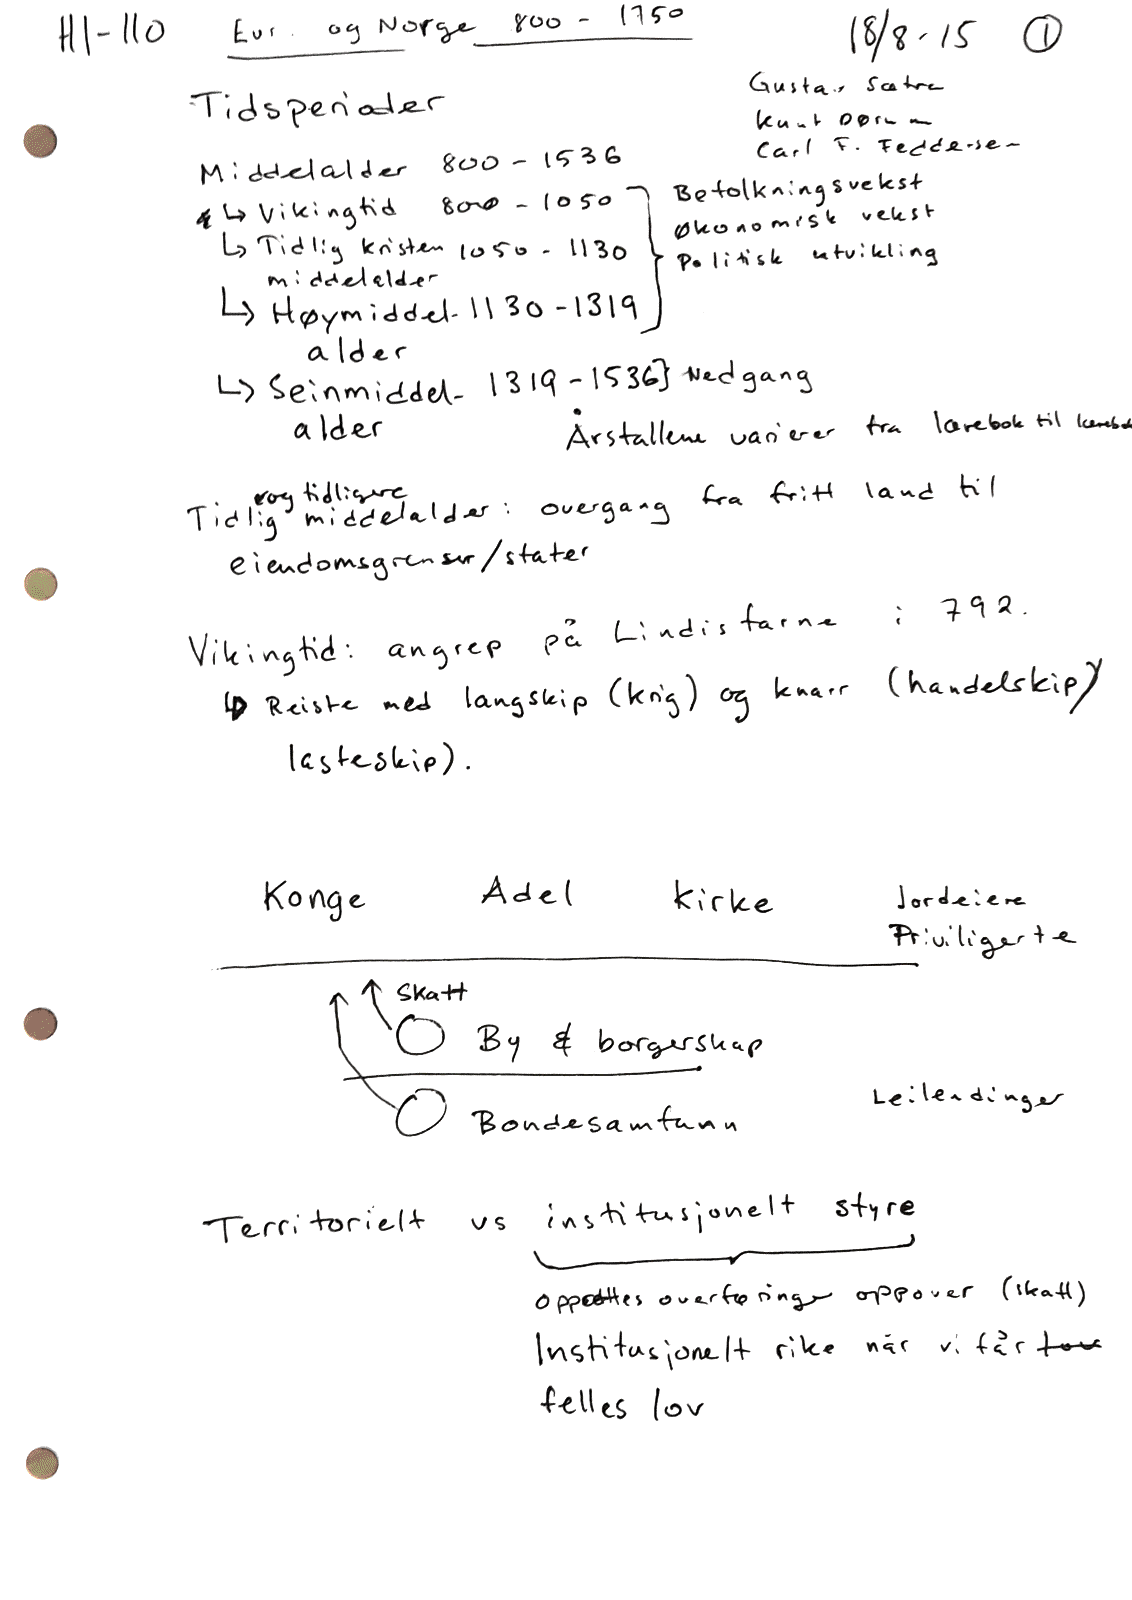 HI-110 Eur. og Norge 800 - 1750 18/8-15 1
Gustav Sætra
Knut Dørum
Carl F. Feddersen
Tidsperioder
Middelalder 800 - 1536
↳ Vikingtid 800 - 1050
↳ Tidlig kristen 1050 - 1130
middelalder
↳ Høymiddel- 1130 - 1319
alder
Befolkningsvekst
Økonomisk vekst
Politisk utvikling
↳ Seinmiddel- 1319 - 1536} Nedgang
alder
Årstallene varierer fra lærebok til lærebok
og tidligere
Tidlig middelalder: overgang fra fritt land til
eiendomsgrenser/stater
Vikingtid: angrep på Lindisfarne i 792.
↳ Reiste med langskip (krig) og knarr (handelskip/
lasteskip).
Konge Adel Kirke Jordeiere
Priviligerte
Skatt
By & borgerskap
Bondesamfunn Leilendinger
Territorielt vs institusjonelt styre
overføringer oppover (skatt)
Institusjonelt rike når vi får
felles lov